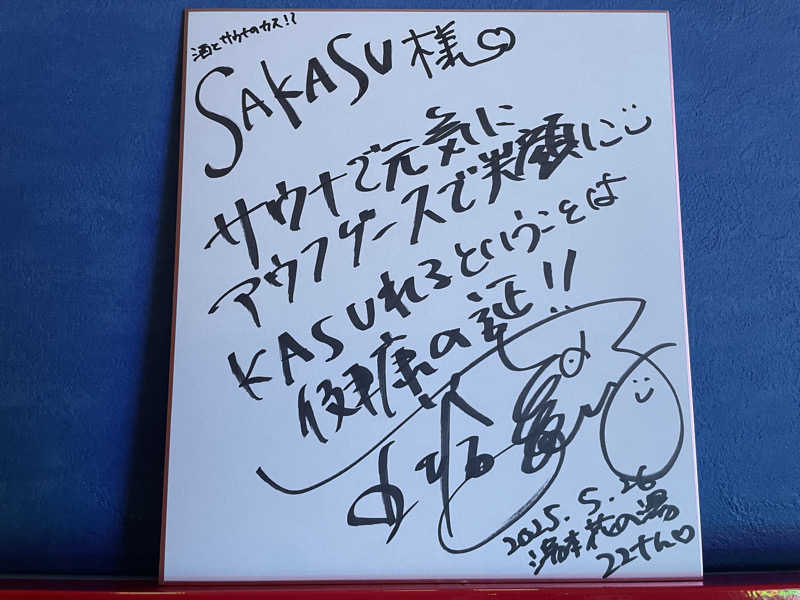 酒とサウナのカス!?
SAKASU様♡
サウナで元気に
アウフグースで笑顔に
KASUれるということは
健康の証!!
2025.5.26
湯花の湯